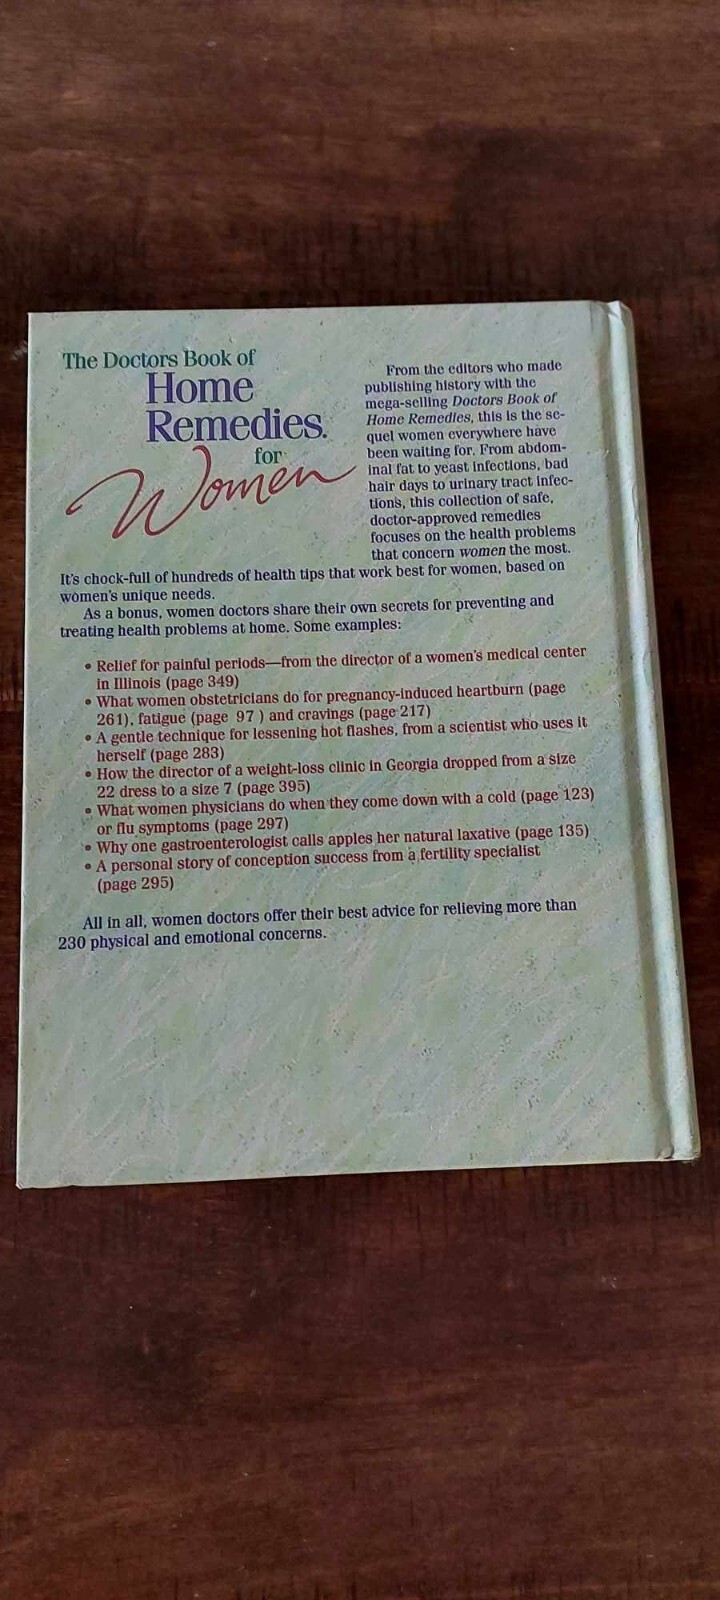 The Doctors Book of
Home
Remedies.
for
Women
From the editors who made
publishing history with the
mega-selling Doctors Book of
Home Remedies, this is the se-
quel women everywhere have
been waiting for. From abdom-
inal fat to yeast infections, bad
hair days to urinary tract infec-
tions, this collection of safe,
doctor-approved remedies
focuses on the health problems
that concern women the most.
It's chock-full of hundreds of health tips that work best for women, based on
women's unique needs.
As a bonus, women doctors share their own secrets for preventing and
treating health problems at home. Some examples:
• Relief for painful periods—from the director of a women's medical center
in Illinois (page 349)
• What women obstetricians do for pregnancy-induced heartburn (page
261), fatigue (page 97 ) and cravings (page 217)
• A gentle technique for lessening hot flashes, from a scientist who uses it
herself (page 283)
• How the director of a weight-loss clinic in Georgia dropped from a size
22 dress to a size 7 (page 395)
• What women physicians do when they come down with a cold (page 123)
or flu symptoms (page 297)
• Why one gastroenterologist calls apples her natural laxative (page 135)
• A personal story of conception success from a fertility specialist
(page 295)
All in all, women doctors offer their best advice for relieving more than
230 physical and emotional concerns.